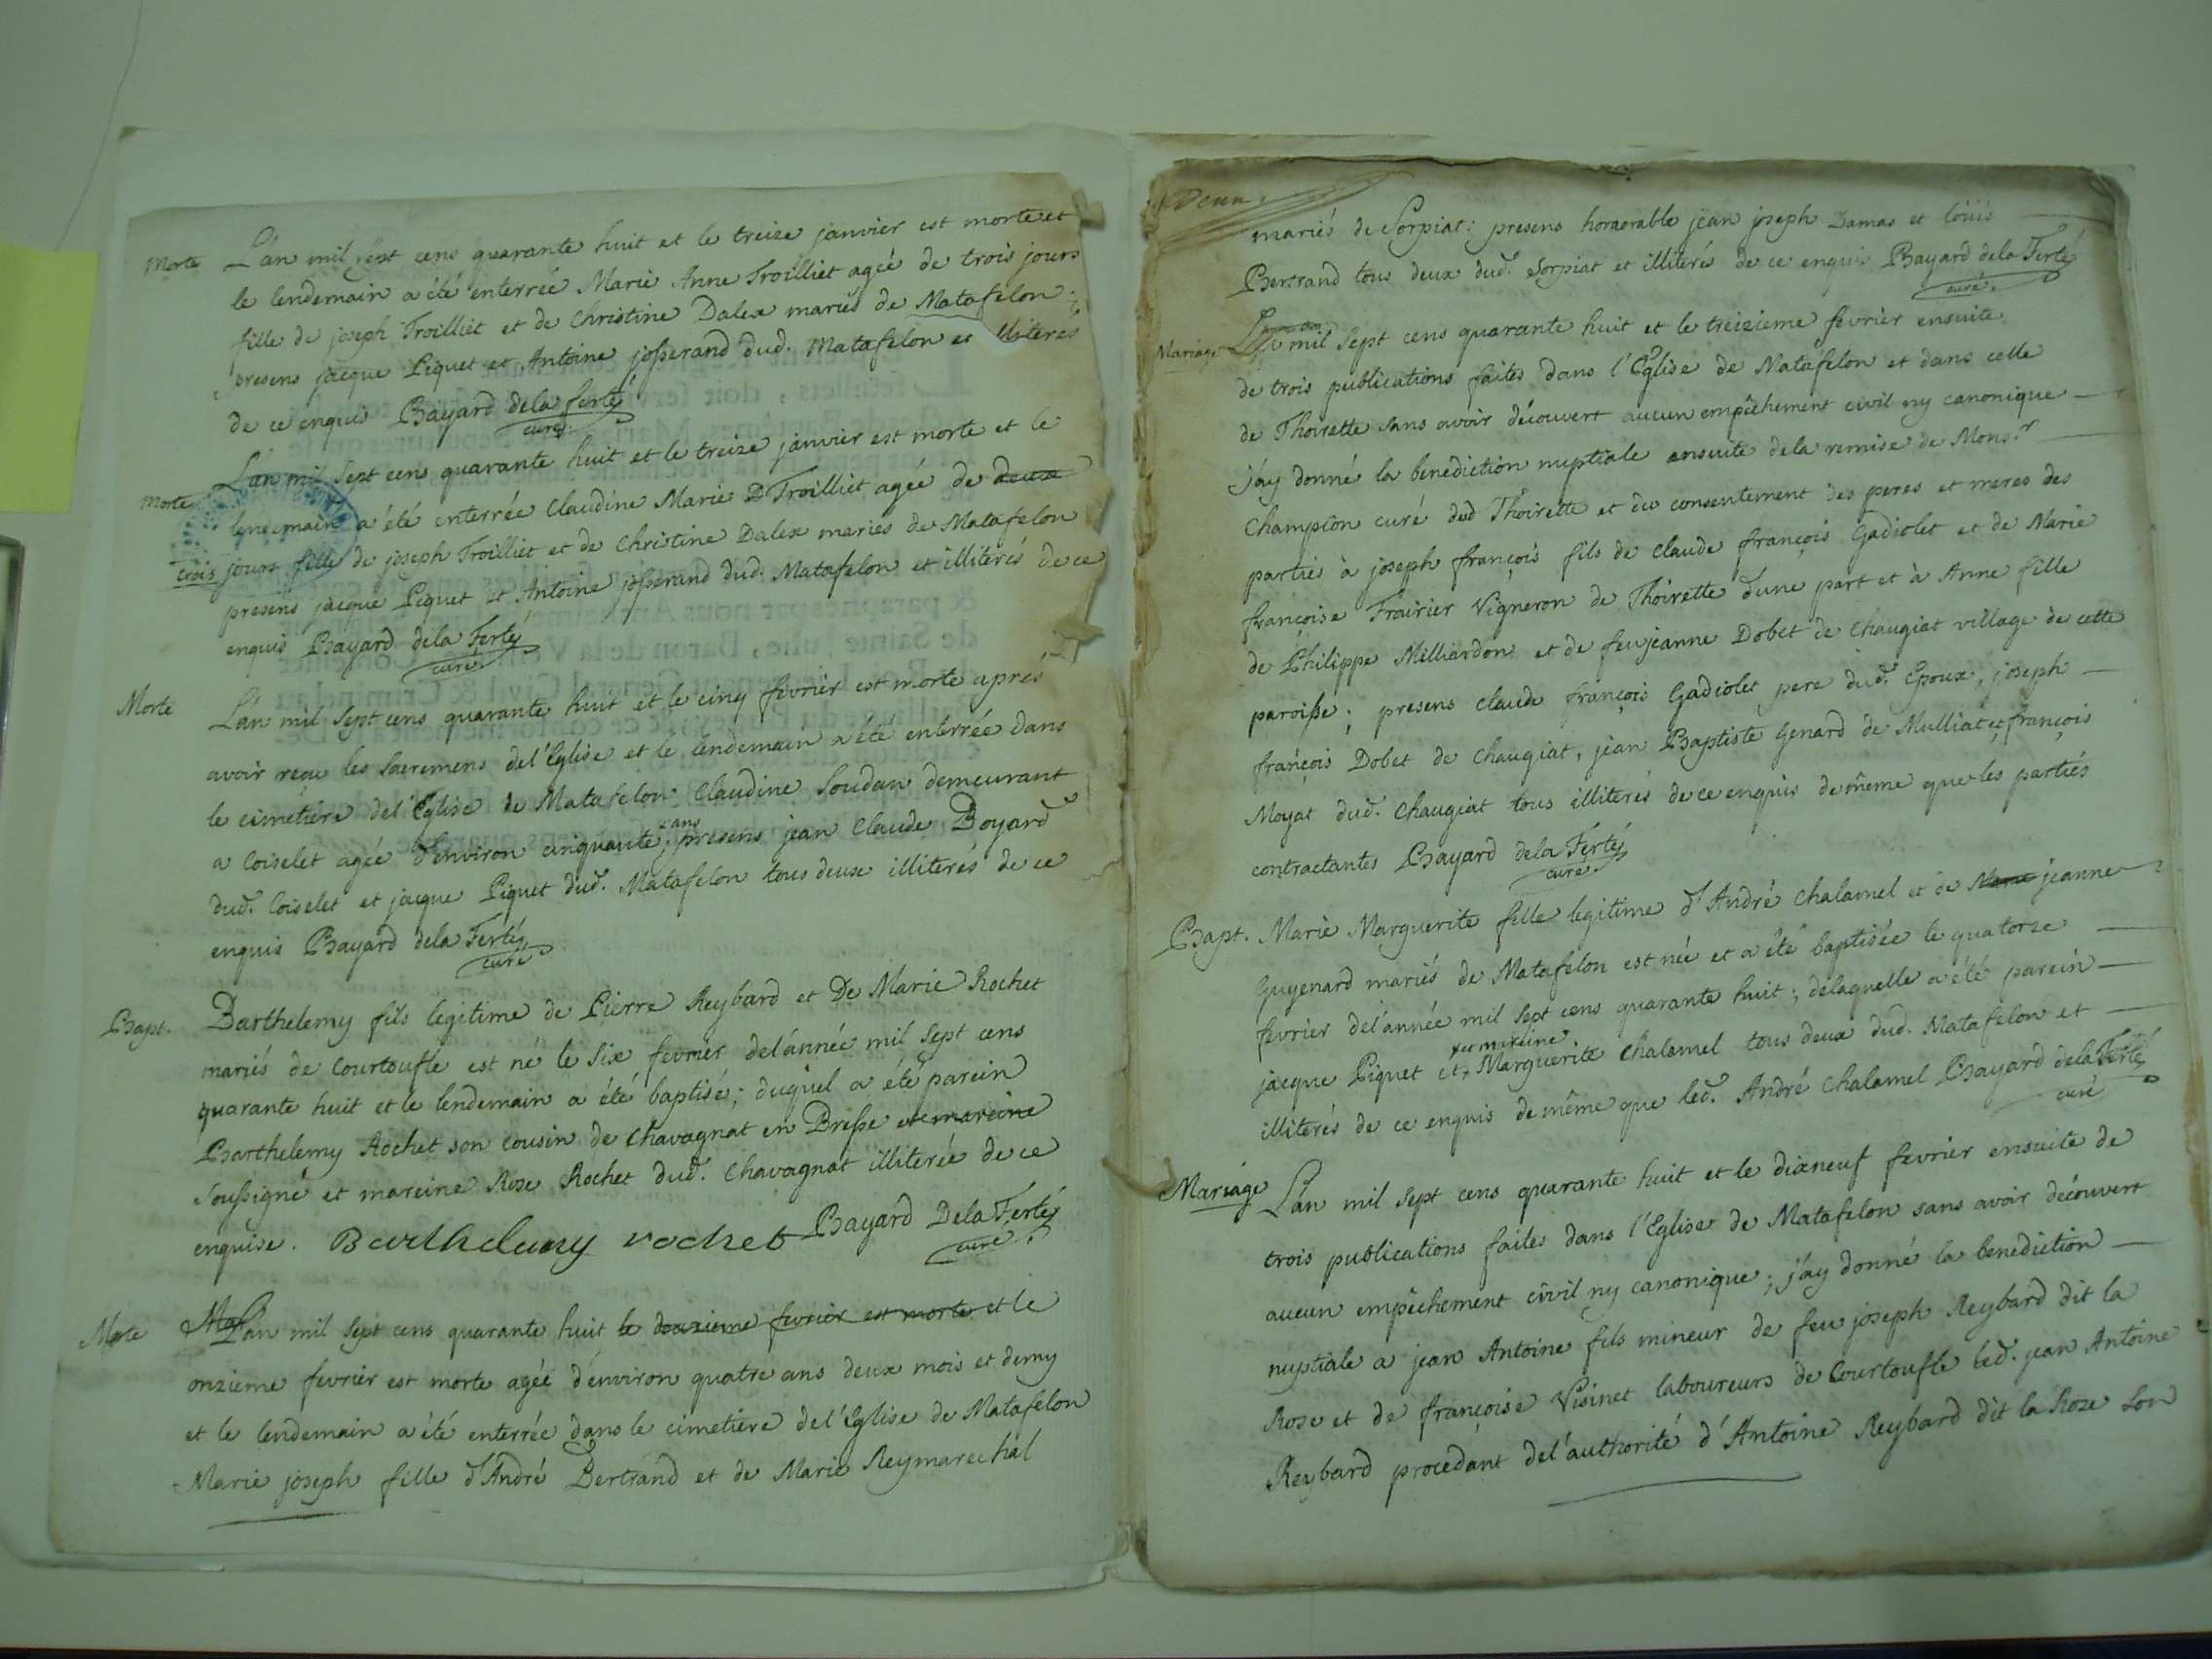 Morte L'an mil sept cens quarante huit et le treize janvier est morte et
le lendemain a été enterrée Marie Anne Troilliet agée de trois jours
fille de joseph Troilliet et de Christine Dalex mariés de Matafelon
presens jacque Piquet et Antoine josserand dud. Matafelon et illiterés
de ce enquis Bayard dela ferté
curé
Morte L'an mil sept cens quarante huit et le treize janvier est morte et le
lendemain a été enterrée Claudine Marie D Troilliet agée de deux
trois jours fille de joseph Troilliet et de Christine Dalex mariés de Matafelon
presens jacque Piquet et Antoine josserand dud. Matafelon et illiterés de ce
enquis Bayard dela Ferté
curé
Morte L'an mil sept cens quarante huit et le cinq fevrier est morte aprés
avoir reçu les sacremens del'Eglise et le lendemain a été enterrée dans
le cimetiere del'Eglise de Matafelon Claudine Soudan demeurant
a Coiselet agée d'environ cinquante ans; presens jean Claude Boyard
dud. Coiselet et jacque Piquet dud. Matafelon tous deux illiterés de ce
enquis Bayard dela Ferté
curé
Bapt. Barthelemy fils legitime de Pierre Reybard et De Marie Rochet
mariés de Courtoufle est né le six fevrier del'année mil sept cens
quarante huit et le lendemain a été baptisé; duquel a été parein
Barthelemy Rochet son cousin de Chavagnat en Bresse et mareine
soussigné et mareine Rose Rochet dud. Chavagnat illiterée de ce
enquise. Barthelemy rochet Bayard Dela Ferté
curé
Morte Mar L'an mil sept cens quarante huit le douzieme fevrier est morte et le
onzieme fevrier est morte agée d'environ quatre ans deux mois et demy
et le lendemain a été enterrée dans le cimetiere del'Eglise de Matafelon
Marie joseph fille d'André Bertrand et de Marie Reymarechal
Deux
mariés de Sorpiat: presens honnorable jean joseph Damas et loüis
Bertrand tous deux dud. Sorpiat et illiterés de ce enquis Bayard dela Ferté
curé
Mariage L'an mil sept cens quarante huit et le treizieme fevrier ensuite
de trois publications faites dans l'Eglise de Matafelon et dans celle
de Thoirette sans avoir découvert aucun empêchement civil ny canonique
j'ay donné la benediction nuptiale ensuite dela remise de Mons.r
Champion curé dud Thoirette et du consentement des peres et meres des
parties à joseph françois fils de Claude françois Gadiolet et de Marie
françoise Frairier Vigneron de Thoirette d'une part et à Anne fille
de Philippe Milliardon et de feu jeanne Dobet de Chaugiat village de cette
paroisse; presens Claude françois Gadiolet pere dud. Epoux, joseph
françois Dobet de Chaugiat, jean Baptiste Genard de Mulliat et françois
Moyat dud. Chaugiat tous illiterés de ce enquis de même que les parties
contractantes Bayard dela Ferté
curé
Bapt. Marie Marguerite fille legitime d'André Chalamel et de Marie jeanne
Guyenard mariés de Matafelon est née et a été baptisée le quatorze
fevrier del'année mil sept cens quarante huit; delaquelle a été parein
jacque Piquet et mareine Marguerite Chalamel tous deux dud. Matafelon et
illiterés de ce enquis de même que led. André Chalamel Bayard dela Ferté
curé
Mariage L'an mil sept cens quarante huit et le dixneuf fevrier ensuite de
trois publications faites dans l'Eglise de Matafelon sans avoir découvert
aucun empêchement civil ny canonique; j'ay donné la benediction
nuptiale a jean Antoine fils mineur de feu joseph Reybard dit la
Rose et de françoise Visinet laboureurs de Courtoufle led. jean Antoine
Reybard procedant del'authorité d'Antoine Reybard dit la Roze son